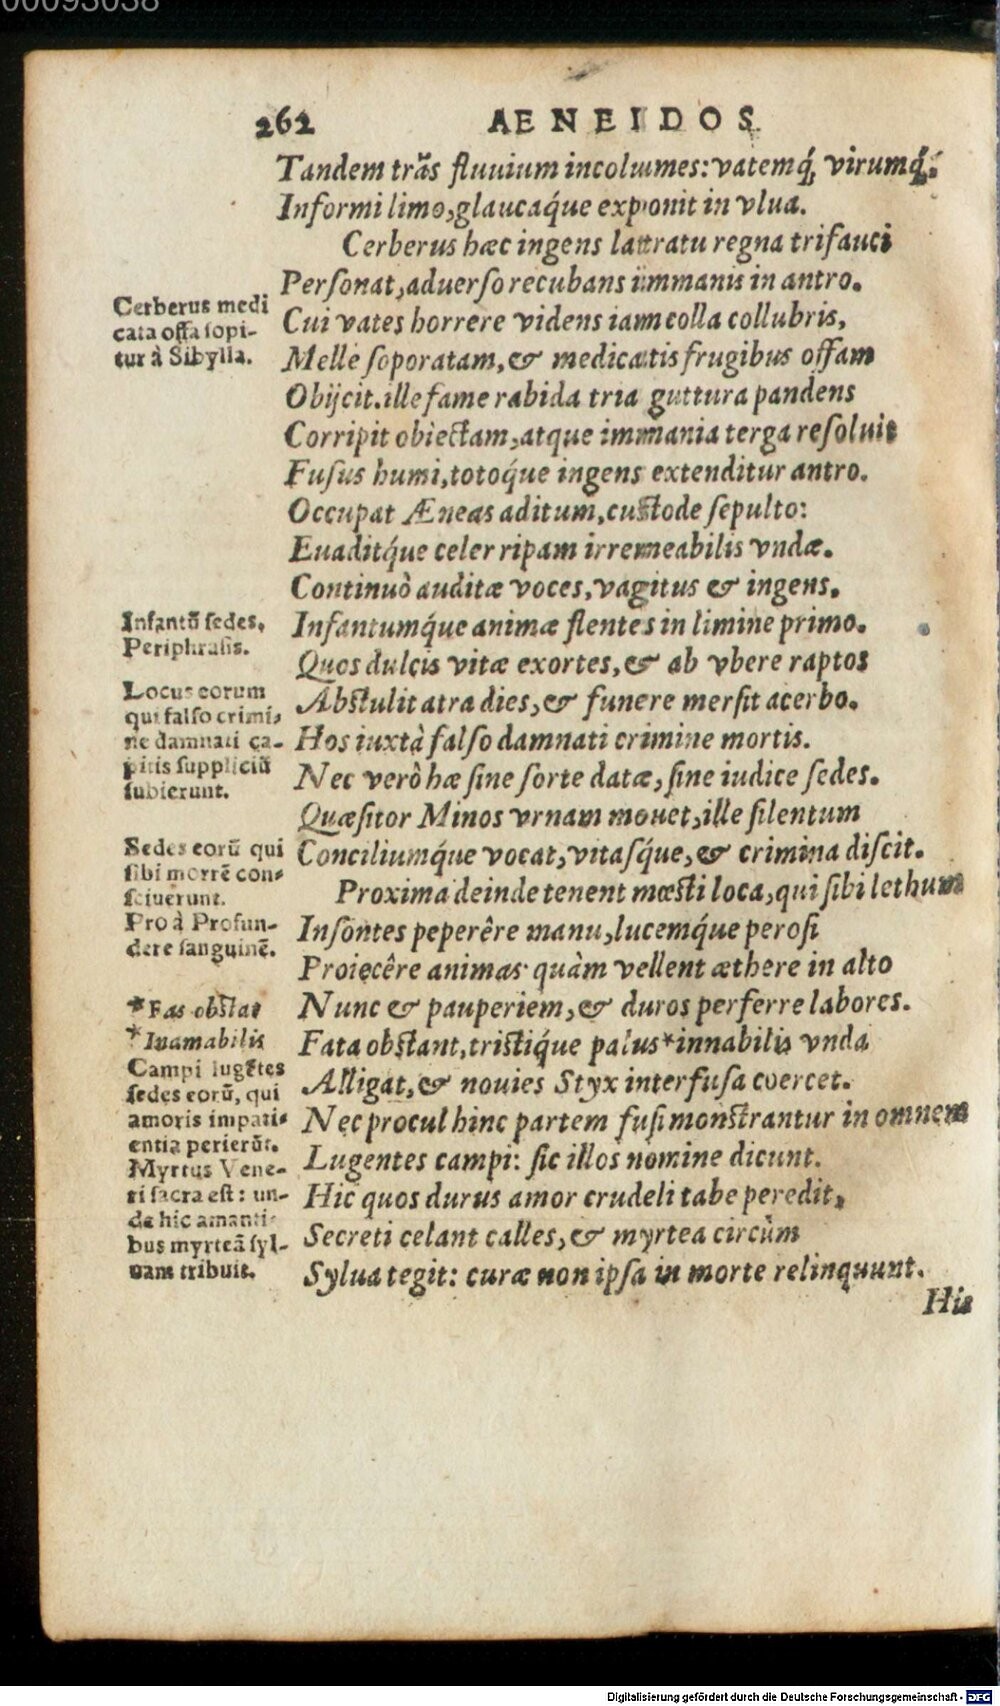 00093038
262 AENEIDOS
Tandem trãs fluuium incolumes: vatemq́; virumq́;
Informi limo, glaucaq́ue exponit in vlua.
Cerberus hæc ingens latratu regna trifauci
Perſonat, aduerſo recubans immanis in antro.
Cui vates horrere videns iam colla collubris,
Melle ſoporatam, & medicatis frugibus offam
Obijcit. ille fame rabida tria guttura pandens
Corripit obiectam, atque immania terga reſoluit
Fuſus humi, totoq́ue ingens extenditur antro.
Occupat Æneas aditum, cuſtode ſepulto:
Euaditq́ue celer ripam irremeabilis vndæ.
Continuò auditæ voces, vagitus & ingens,
Infantumq́ue animæ flentes in limine primo.
Quos dulcis vitæ exortes, & ab vbere raptos
Abſtulit atra dies, & funere merſit acerbo.
Hos iuxtà falſo damnati crimine mortis.
Nec verò hæ ſine ſorte datæ, ſine iudice ſedes.
Quæſitor Minos vrnam mouet, ille ſilentum
Conciliumq́ue vocat, vitaſq́ue, & crimina diſcit.
Proxima deinde tenent mœſti loca, qui ſibi lethum
Inſontes peperêre manu, lucemq́ue peroſi
Proiecêre animas quàm vellent æthere in alto
Nunc & pauperiem, & duros perferre labores.
Fata obſtant, triſtiq́ue palus *innabilis vnda
Alligat, & nouies Styx interfuſa coercet.
Nec procul hinc partem fuſi monſtrantur in omnem
Lugentes campi: ſic illos nomine dicunt.
Hic quos durus amor crudeli tabe peredit,
Secreti celant calles, & myrtea circùm
Sylua tegit: curæ non ipſa in morte relinquunt.
His
Cerberus medi
cata offa ſopi-
tur à Sibylla.
Infantũ ſedes.
Periphraſis.
Locus eorum
qui falſo crimi-
ne damnati ca-
pitis ſuppliciũ
ſubierunt.
Sedes eorũ qui
ſibi mortẽ con-
ſciuerunt.
Pro à Profun-
dere ſanguinẽ.
*Fas obſtat
*Inamabilis
Campi lugẽtes
ſedes eorũ, qui
amoris impati-
entia perierũt.
Myrtus Vene-
ri ſacra eſt: un-
de hic amanti-
bus myrteã ſyl-
uam tribuit.
Digitalisierung gefördert durch die Deutsche Forschungsgemeinschaft - DFG